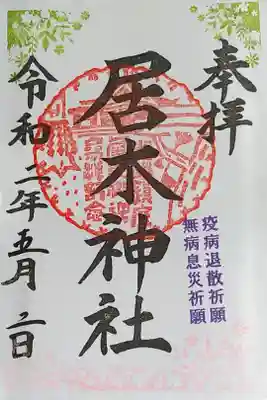 奉拝
居木神社
疫病退散祈願
無病息災祈願
令和二年五月二日